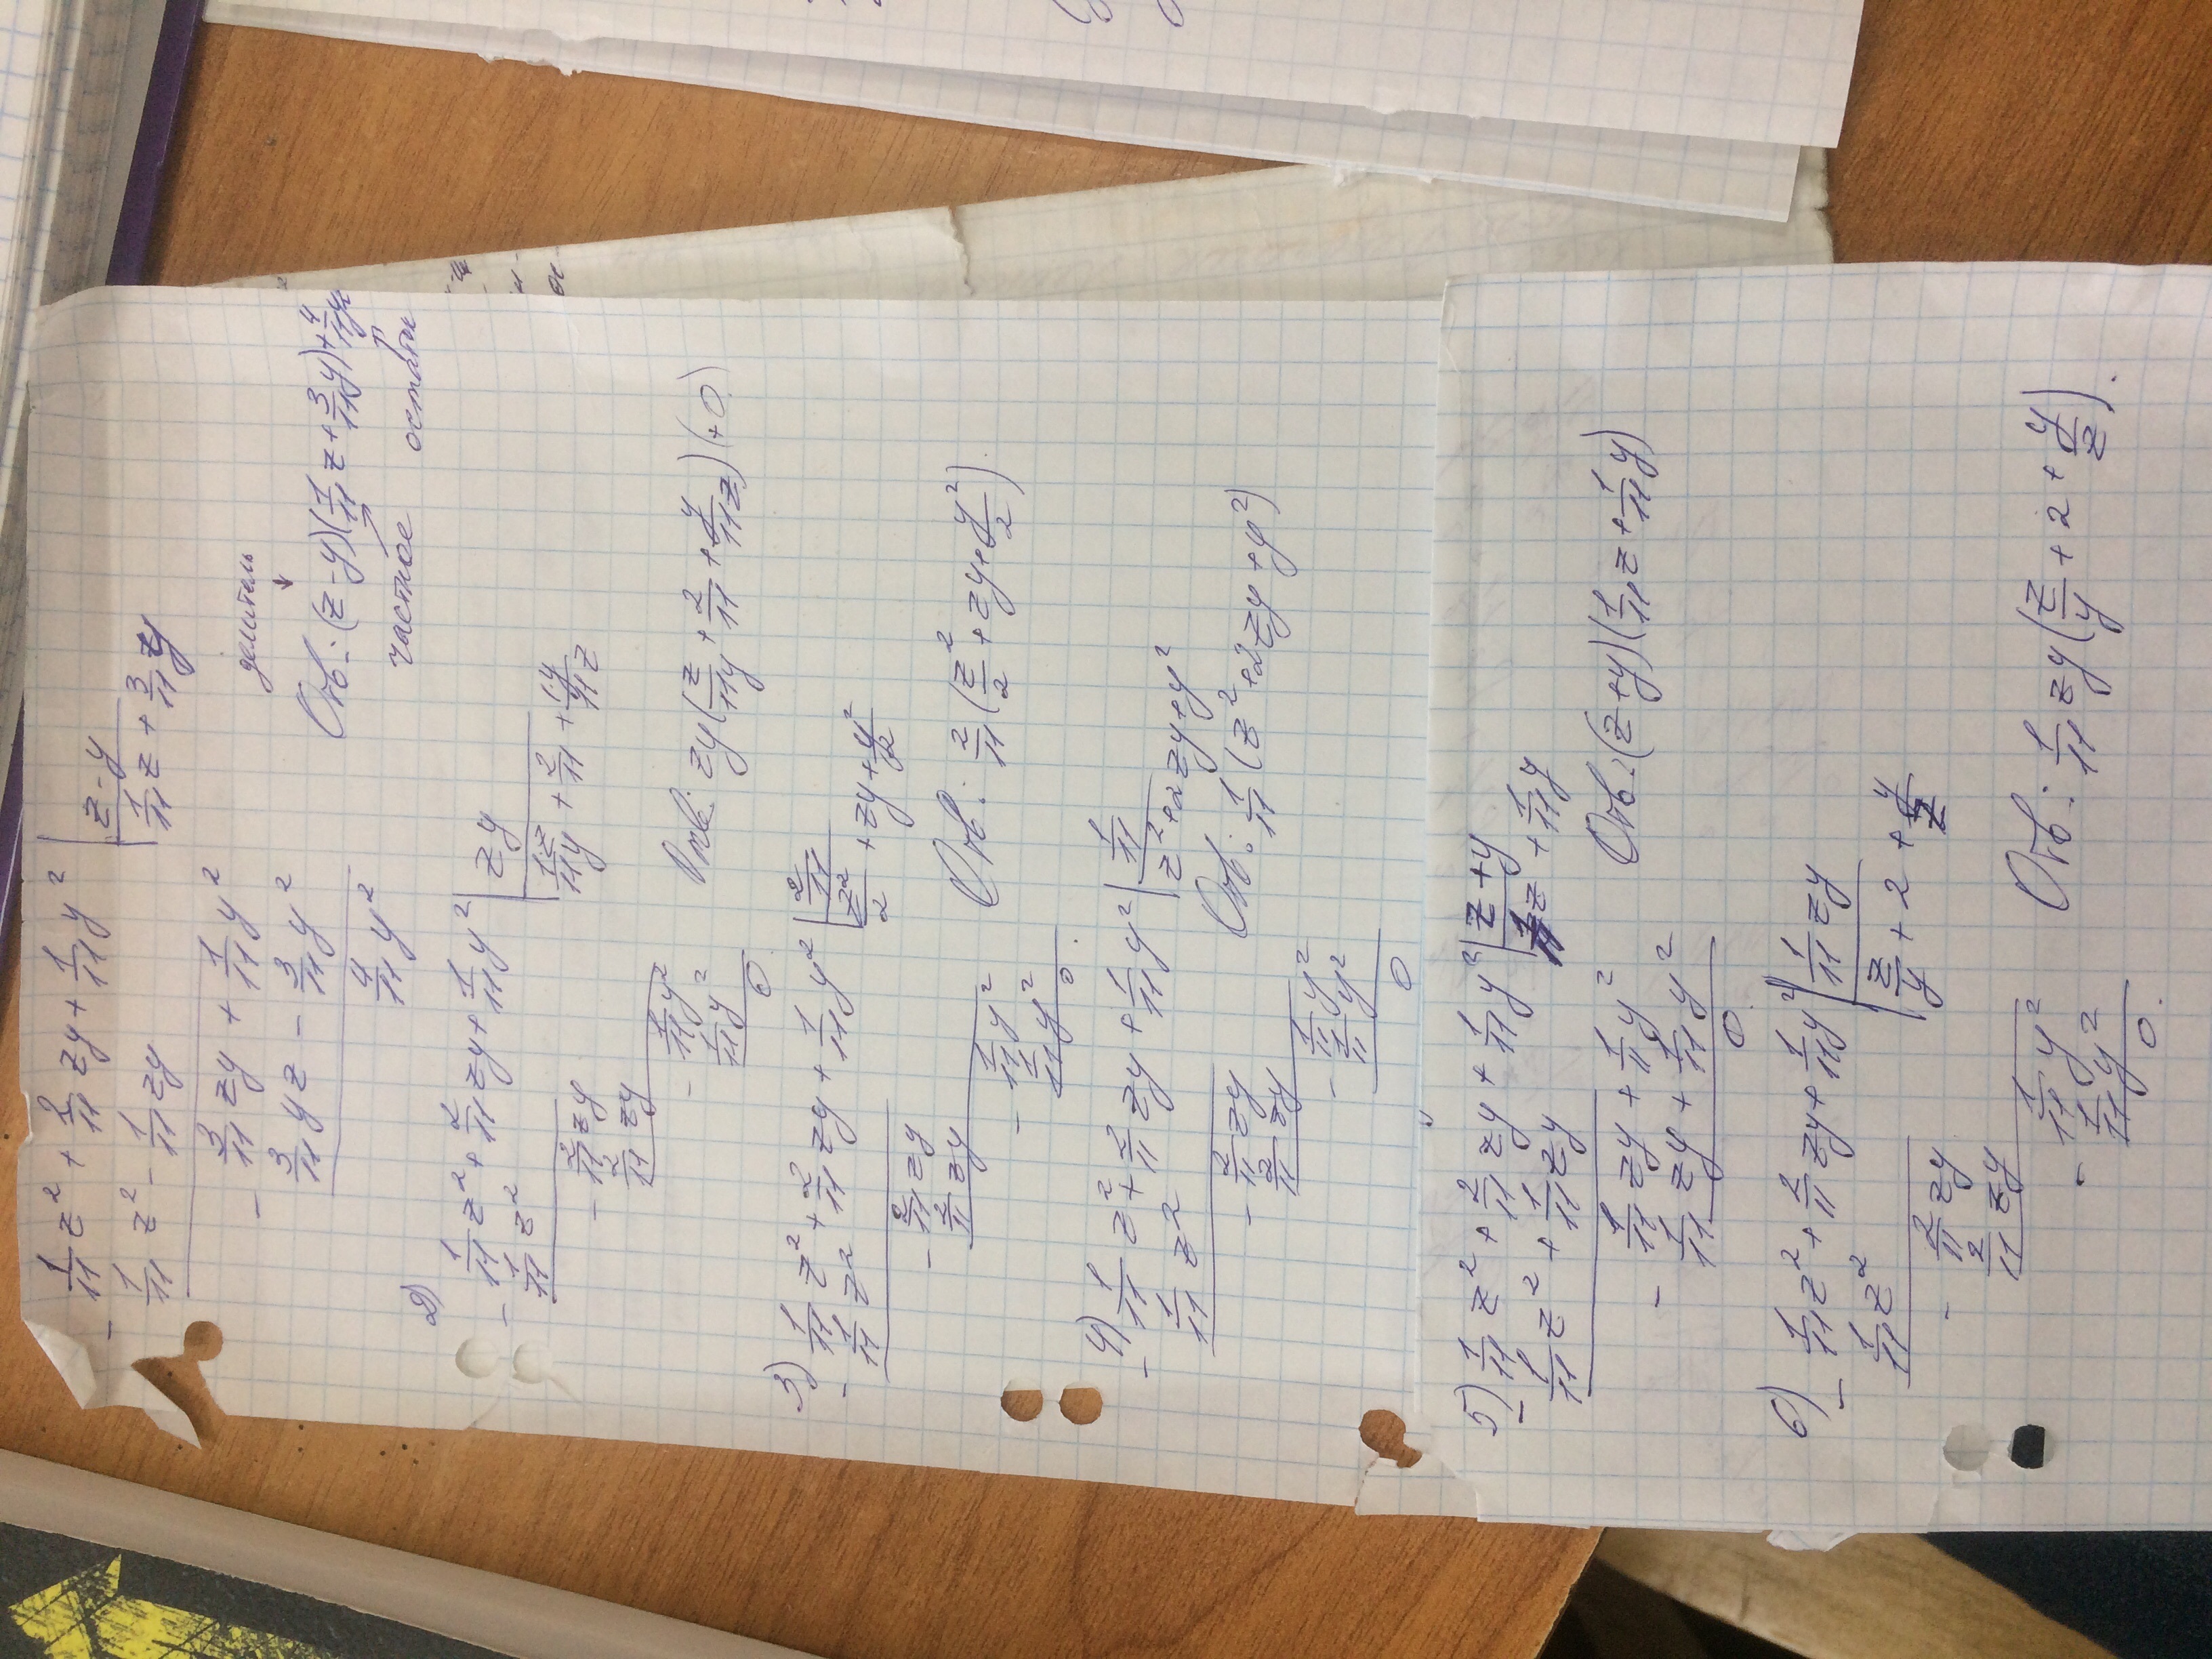 - 1/11 z² + 2/11 zy + 1/11 y² | z - y
1/11 z² - 1/11 zy | 1/11 z + 3/11 y
- 3/11 zy + 1/11 y²
3/11 yz - 3/11 y²
4/11 y²
делитель
Отв.: (z - y)(1/11 z + 3/11 y) + 4/11 y²
частное остаток
2)
- 1/11 z² + 2/11 zy + 1/11 y² | zy
1/11 z² | 1·z/11y + 2/11 + 1·y/11z
- 2/11 zy
2/11 zy
- 1/11 y²
1/11 y²
0.
Отв: zy(z/11y + 2/11 + y/11z)(+0)
3) - 1/11 z² + 2/11 zy + 1/11 y² | 2/11
1/11 z² | z²/2 + zy + y²/2
- 2/11 zy
2/11 zy
- 1/11 y²
1/11 y²
0.
Отв.: 2/11 (z²/2 + zy + y²/2).
4) - 1/11 z² + 2/11 zy + 1/11 y² | 1/11
1/11 z² | z² + 2zy + y²
- 2/11 zy
2/11 zy
- 1/11 y²
1/11 y²
0
Отв.: 1/11 (z² + 2zy + y²)
5) - 1/11 z² + 2/11 zy + 1/11 y² | z + y
1/11 z² + 1/11 zy | 1/11 z + 1/11 y
- 1/11 zy + 1/11 y²
1/11 zy + 1/11 y²
0.
Отв.: (z + y)(1/11 z + 1/11 y)
6) - 1/11 z² + 2/11 zy + 1/11 y² | 1/11 zy
1/11 z² | z/y + 2 + y/z
- 2/11 zy
2/11 zy
- 1/11 y²
1/11 y²
0.
Отв.: 1/11 zy (z/y + 2 + y/z).